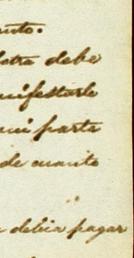 nto.
letra debe
nifestarle
mi parte
de cuanto
debia pagar